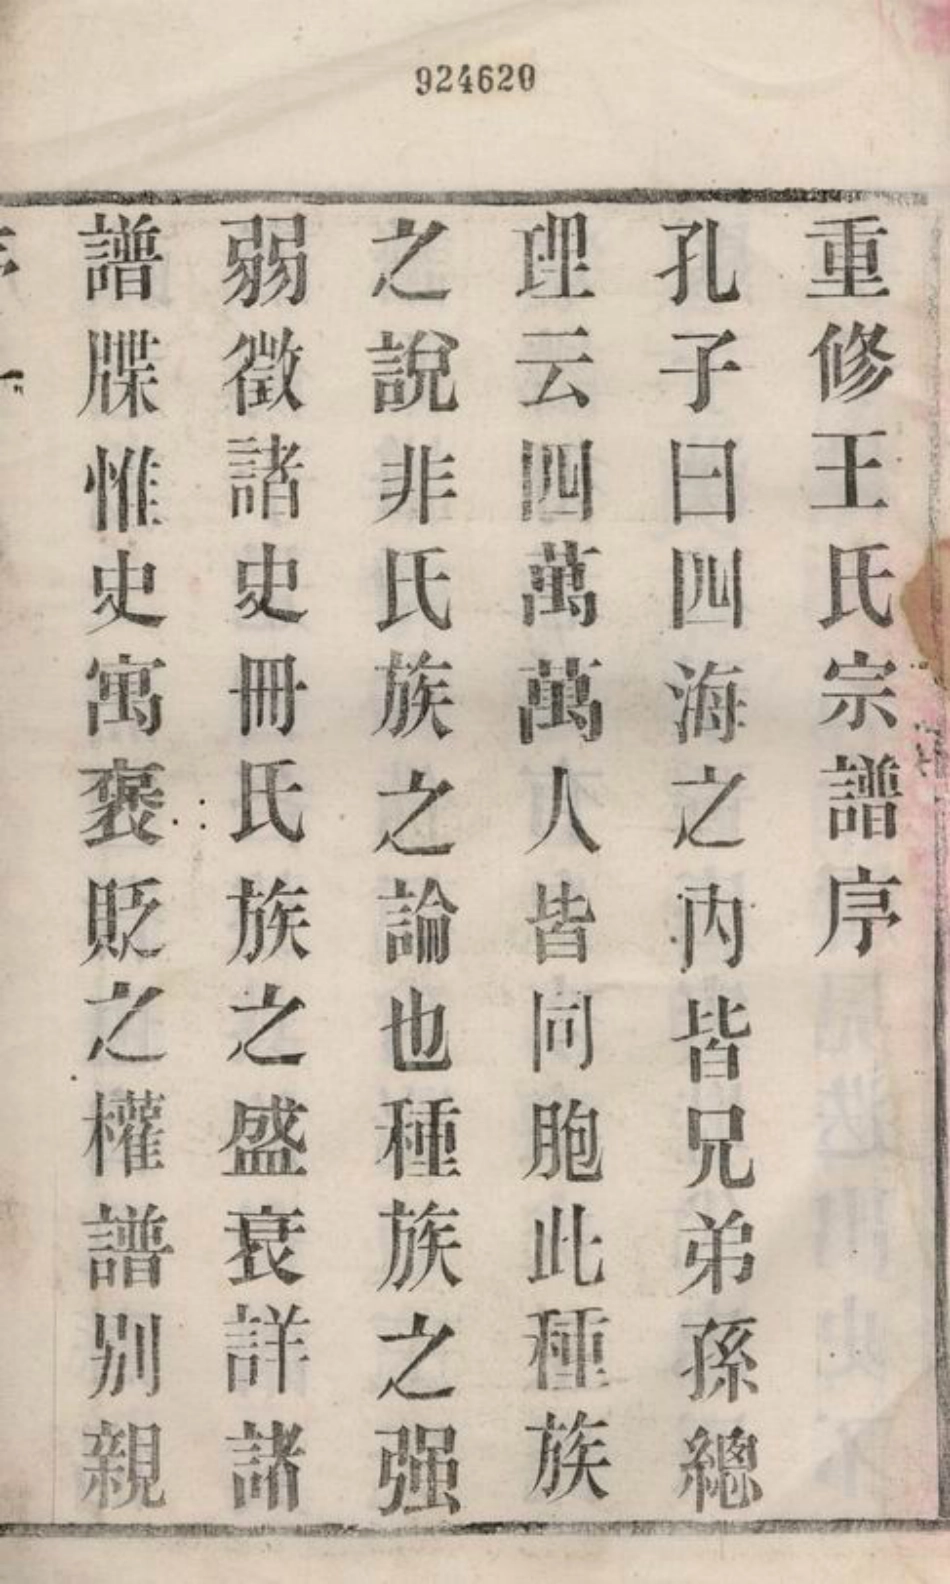 924620
重修王氏宗譜序
孔子曰四海之內皆兄弟孫總
理云四萬萬人皆同胞此種族
之說非氏族之論也種族之强
弱徵諸史冊氏族之盛衰詳諸
譜牒惟史寓褒貶之權譜別親